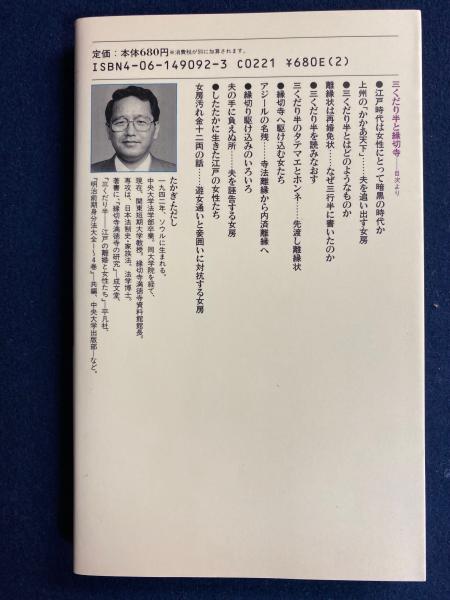 定価：本体680円※消費税が別に加算されます。
ISBN4-06-149092-3 C0221 ¥680E(2)
三くだり半と縁切寺――目次より
●江戸時代は女性にとって暗黒の時代か
上州の「かかあ天下」……夫を追い出す女房
●三くだり半とはどのようなものか
離縁状は再婚免状……なぜ三行半に書いたのか
●三くだり半を読みなおす
三くだり半のタテマエとホンネ……先渡し離縁状
●縁切寺へ駆け込む女たち
アジールの名残……寺法離縁から内済離縁へ
●縁切り駆け込みのいろいろ
夫の手に負えぬ所……夫を誣告する女房
●したたかに生きた江戸の女性たち
女房汚れ金十二両の話……遊女通いと妾囲いに対抗する女房
たかぎただし
一九四二年、ソウルに生まれる。
中央大学法学部卒業。同大学院を経て、
現在、関東短期大学教授。縁切寺満徳寺資料館館長。
専攻は、日本法制史・家族法。法学博士。
著書に、『縁切寺満徳寺の研究』―成文堂、
『三くだり半――江戸の離婚と女性たち』―平凡社、
『明治前期身分法大全1〜4巻』―共編、中央大学出版部―など。